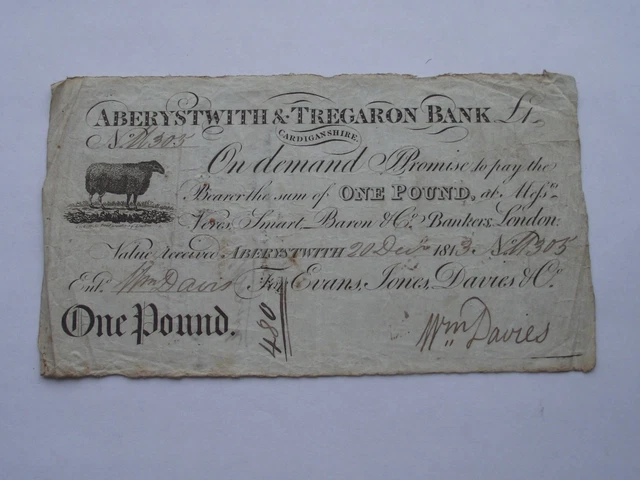 ABERYSTWITH & TREGARON BANK £1
CARDIGANSHIRE.
No. 305
On demand I Promise to pay the
Bearer the sum of ONE POUND, at Messrs.
Veres Smart, Baron & Co. Bankers, London.
Value Received ABERYSTWITH 20 Decr 1813 No. 305
Entd. Wm Davis For Evans, Jones, Davies & Co.
One Pound.
480
Wm Davies